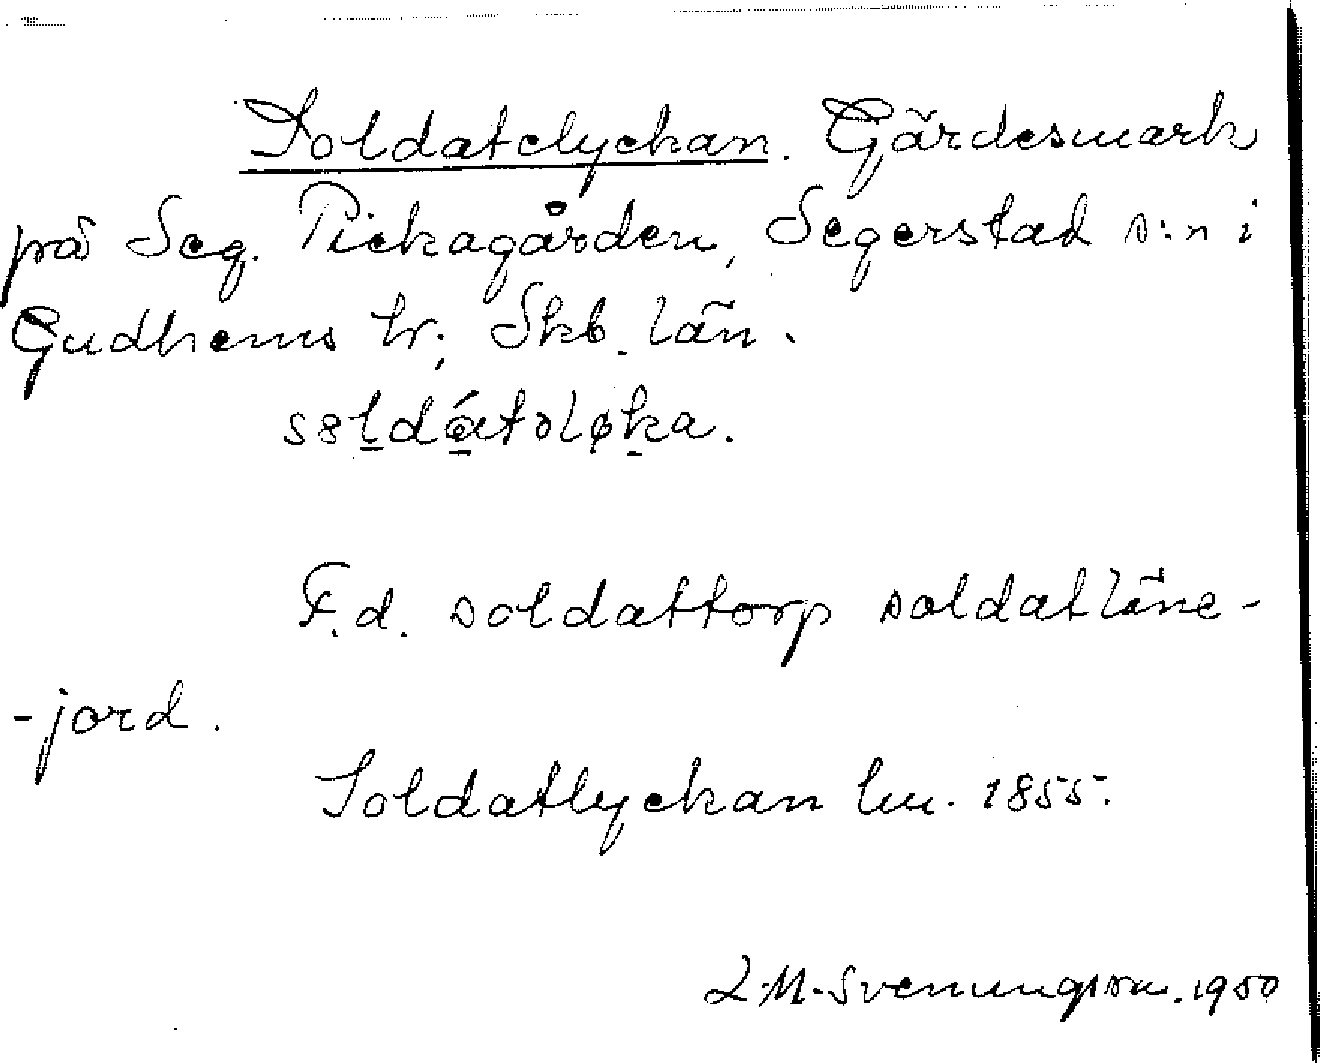 Soldatelyckan. Gärdesmark
på Seg. Pickagården, Segerstad s:n i
Gudhems hr; Skb. län.
F.d. soldattorp soldatlöne-
-jord.
Soldatlyckan lm. 1855.
L.M. Svenungsson. 1950